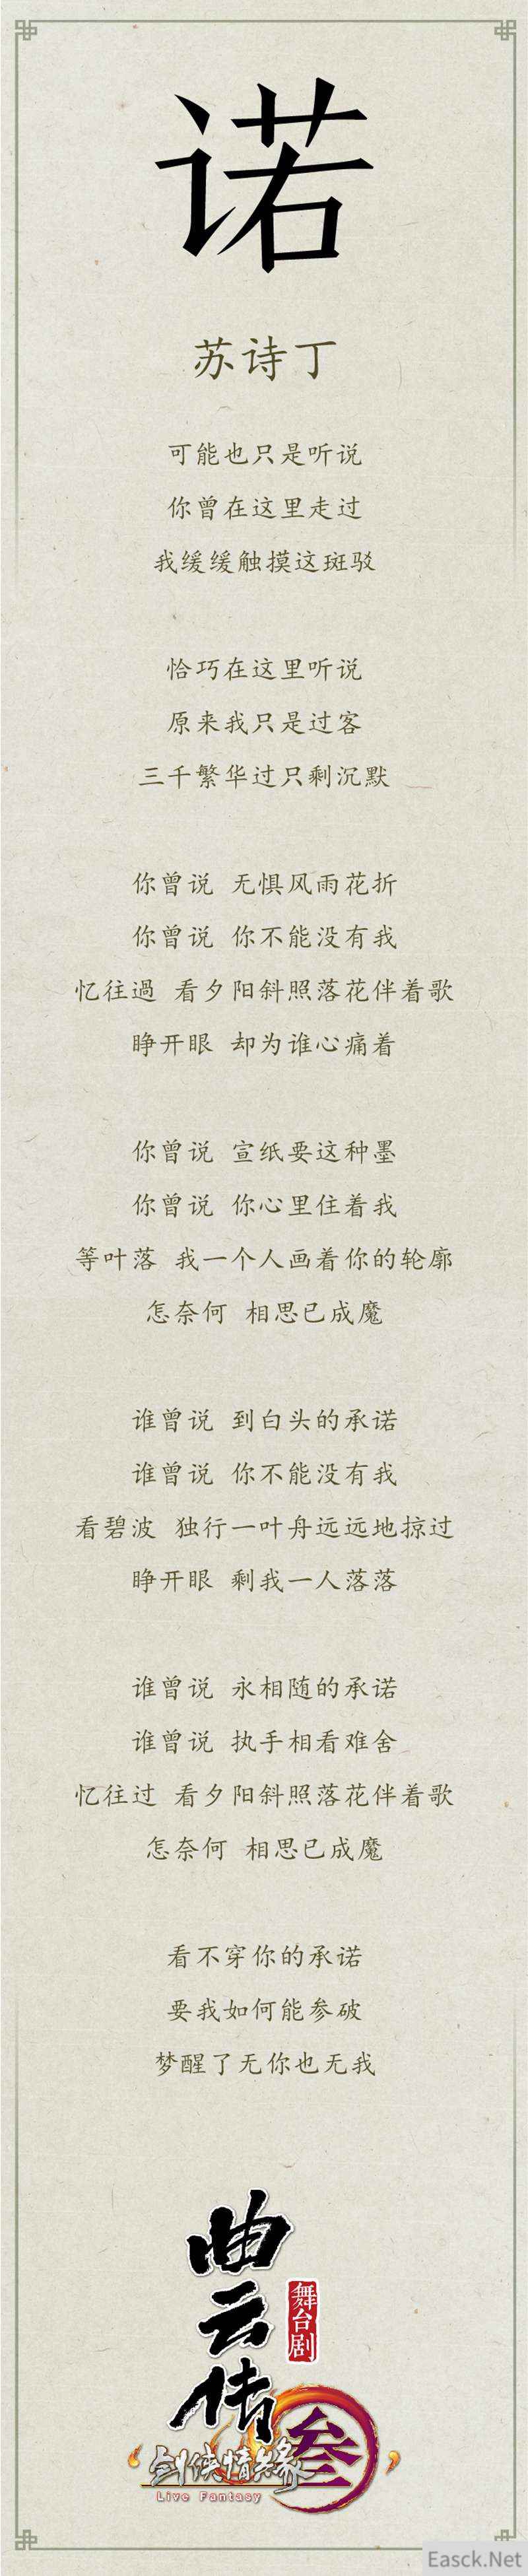 诺
苏诗丁
可能也只是听说
你曾在这里走过
我缓缓触摸这斑驳
恰巧在这里听说
原来我只是过客
三千繁华过只剩沉默
你曾说 无惧风雨花折
你曾说 你不能没有我
忆往過 看夕阳斜照落花伴着歌
睁开眼 却为谁心痛着
你曾说 宣纸要这种墨
你曾说 你心里住着我
等叶落 我一个人画着你的轮廓
怎奈何 相思已成魔
谁曾说 到白头的承诺
谁曾说 你不能没有我
看碧波 独行一叶舟远远地掠过
睁开眼 剩我一人落落
谁曾说 永相随的承诺
谁曾说 执手相看难舍
忆往过 看夕阳斜照落花伴着歌
怎奈何 相思已成魔
看不穿你的承诺
要我如何能参破
梦醒了无你也无我
曲云传
舞台剧
剑侠情缘
叁
Live Fantasy
Easck.Net